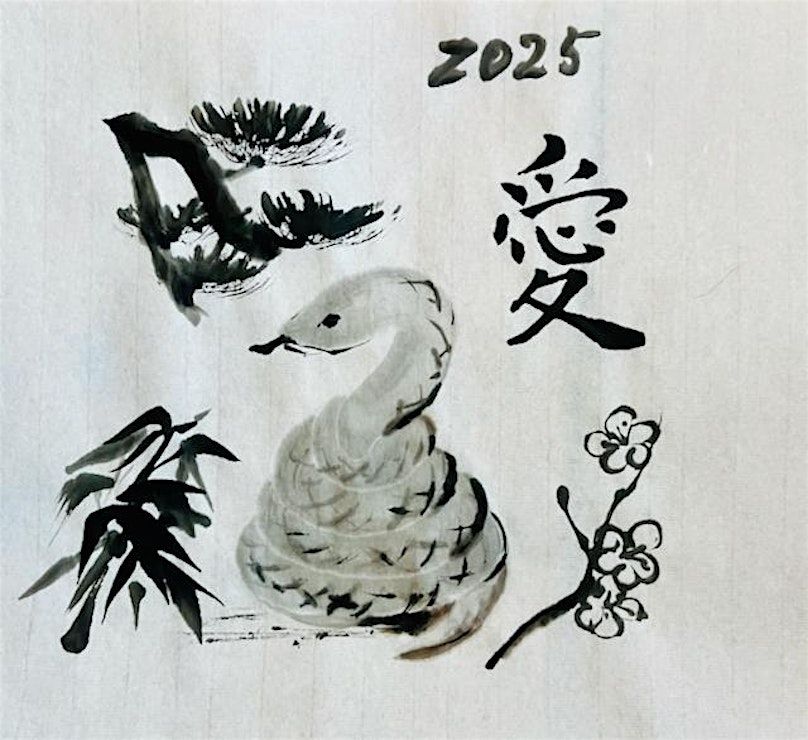 2025
愛